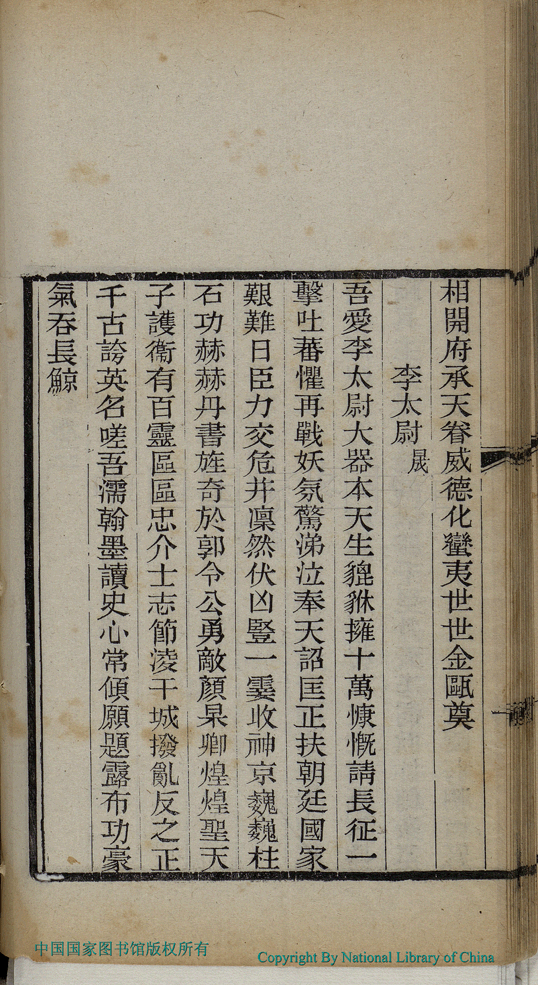 相開府承天眷威德化蠻夷世世金甌奠
李太尉晟
吾愛李太尉大器本天生貔貅擁十萬慷慨請長征一
擊吐蕃懼再戰妖氛驚涕泣奉天詔匡正扶朝廷國家
艱難日臣力交危幷凜然伏凶豎一霎收神京巍巍柱
石功赫赫丹書旌奇於郭令公勇敵顏杲卿煌煌聖天
子護衞有百靈區區忠介士志節淩干城撥亂反之正
千古誇英名嗟吾濡翰墨讀史心常傾願題露布功豪
氣吞長鯨
中国国家图书馆版权所有
Copyright By National Library of China